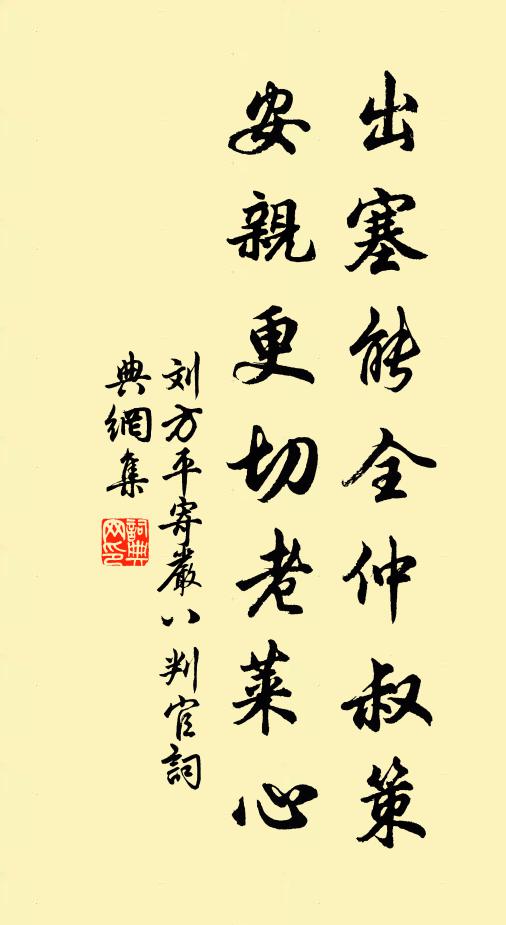 出塞能全仲叔策
安親更切老萊心
刘方平寄嚴八判官詞
典網集
詞典
网印